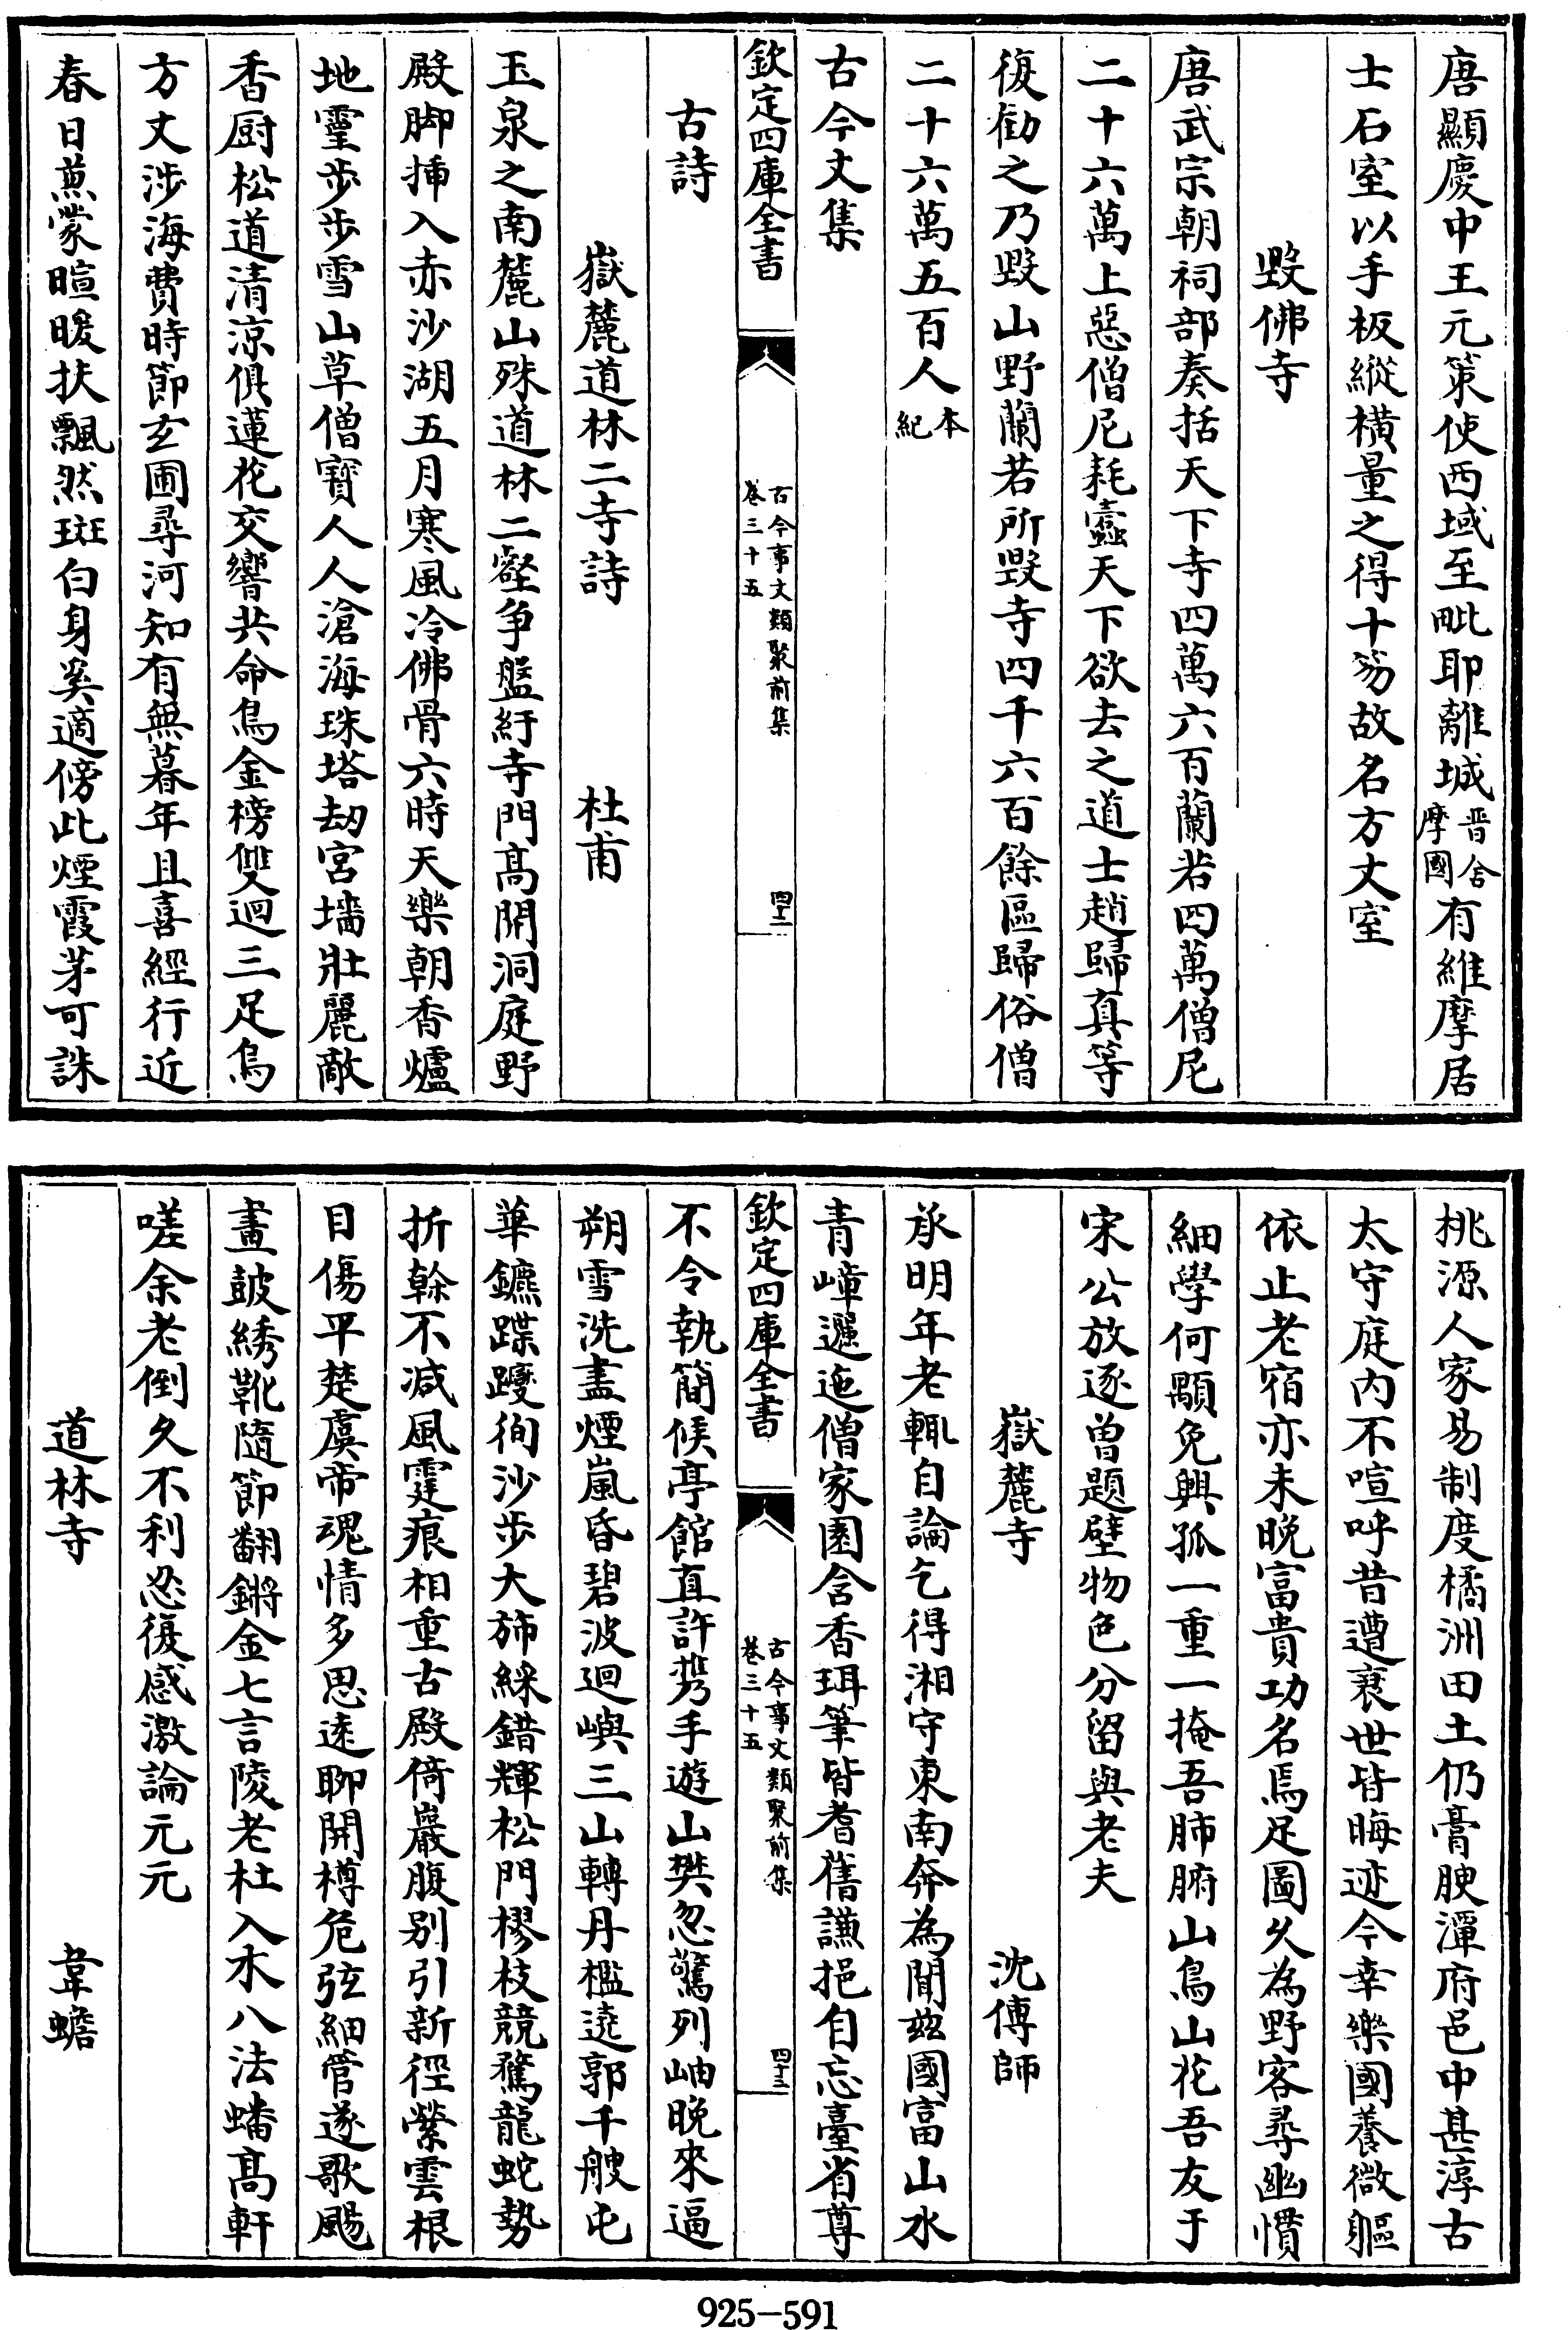 唐顯慶中王元策使西域至毗耶離城晉舍摩國有維摩居
士石室以手板縱橫量之得十笏故名方丈室
毀佛寺
唐武宗朝祠部奏括天下寺四萬六百蘭若四萬僧尼
二十六萬上惡僧尼耗蠧天下欲去之道士趙歸真等
復勸之乃毀山野蘭若所毀寺四千六百餘區歸俗僧
二十六萬五百人本紀
古今文集
欽定四庫全書
古今事文類聚前集
卷三十五
四十二
古詩
嶽麓道林二寺詩 杜甫
玉泉之南麓山殊道林二壑争盤紆寺門髙開洞庭野
殿脚揷入赤沙湖五月寒風冷佛骨六時天樂朝香爐
地靈步步雪山草僧寶人人滄海珠塔劫宫墻壯麗敵
香厨松道清涼俱蓮花交響共命鳥金榜雙迴三足烏
方丈涉海費時節玄圃尋河知有無暮年且喜經行近
春日蒹蒙暄暖扶飄然斑白身奚適傍此煙霞茅可誅
桃源人家易制度橘洲田土仍膏腴潭府邑中甚淳古
太守庭内不喧呼昔遭衰世皆晦迹今幸樂國養微軀
依止老宿亦未晚富貴功名焉足圖久為野客尋幽慣
細學何顒免興孤一重一掩吾肺腑山鳥山花吾友于
宋公放逐曽題壁物色分留與老夫
嶽麓寺 沈傳師
承明年老輒自論乞得湘守東南奔為聞兹國富山水
青嶂邐迤僧家園含香珥筆皆耆舊謙挹自忘臺省尊
欽定四庫全書
古今事文類聚前集
卷三十五
四十三
不令執簡候亭館直許携手遊山樊忽驚列岫晚來逼
朔雪洗盡煙嵐昏碧波迴嶼三山轉丹檻遶郭千艘屯
華鑣蹀躞徇沙步大斾綵錯輝松門樛枝競騖龍蛇勢
折榦不減風霆痕相重古殿倚巖腹别引新徑縈雲根
目傷平楚虞帝魂情多思逺聊開樽危弦細管遂歌颺
畫鼓綉靴隨節翻鏘金七言陵老杜入木八法蟠髙軒
嗟余老倒久不利忍復感激論元元
道林寺 韋蟾
925-591